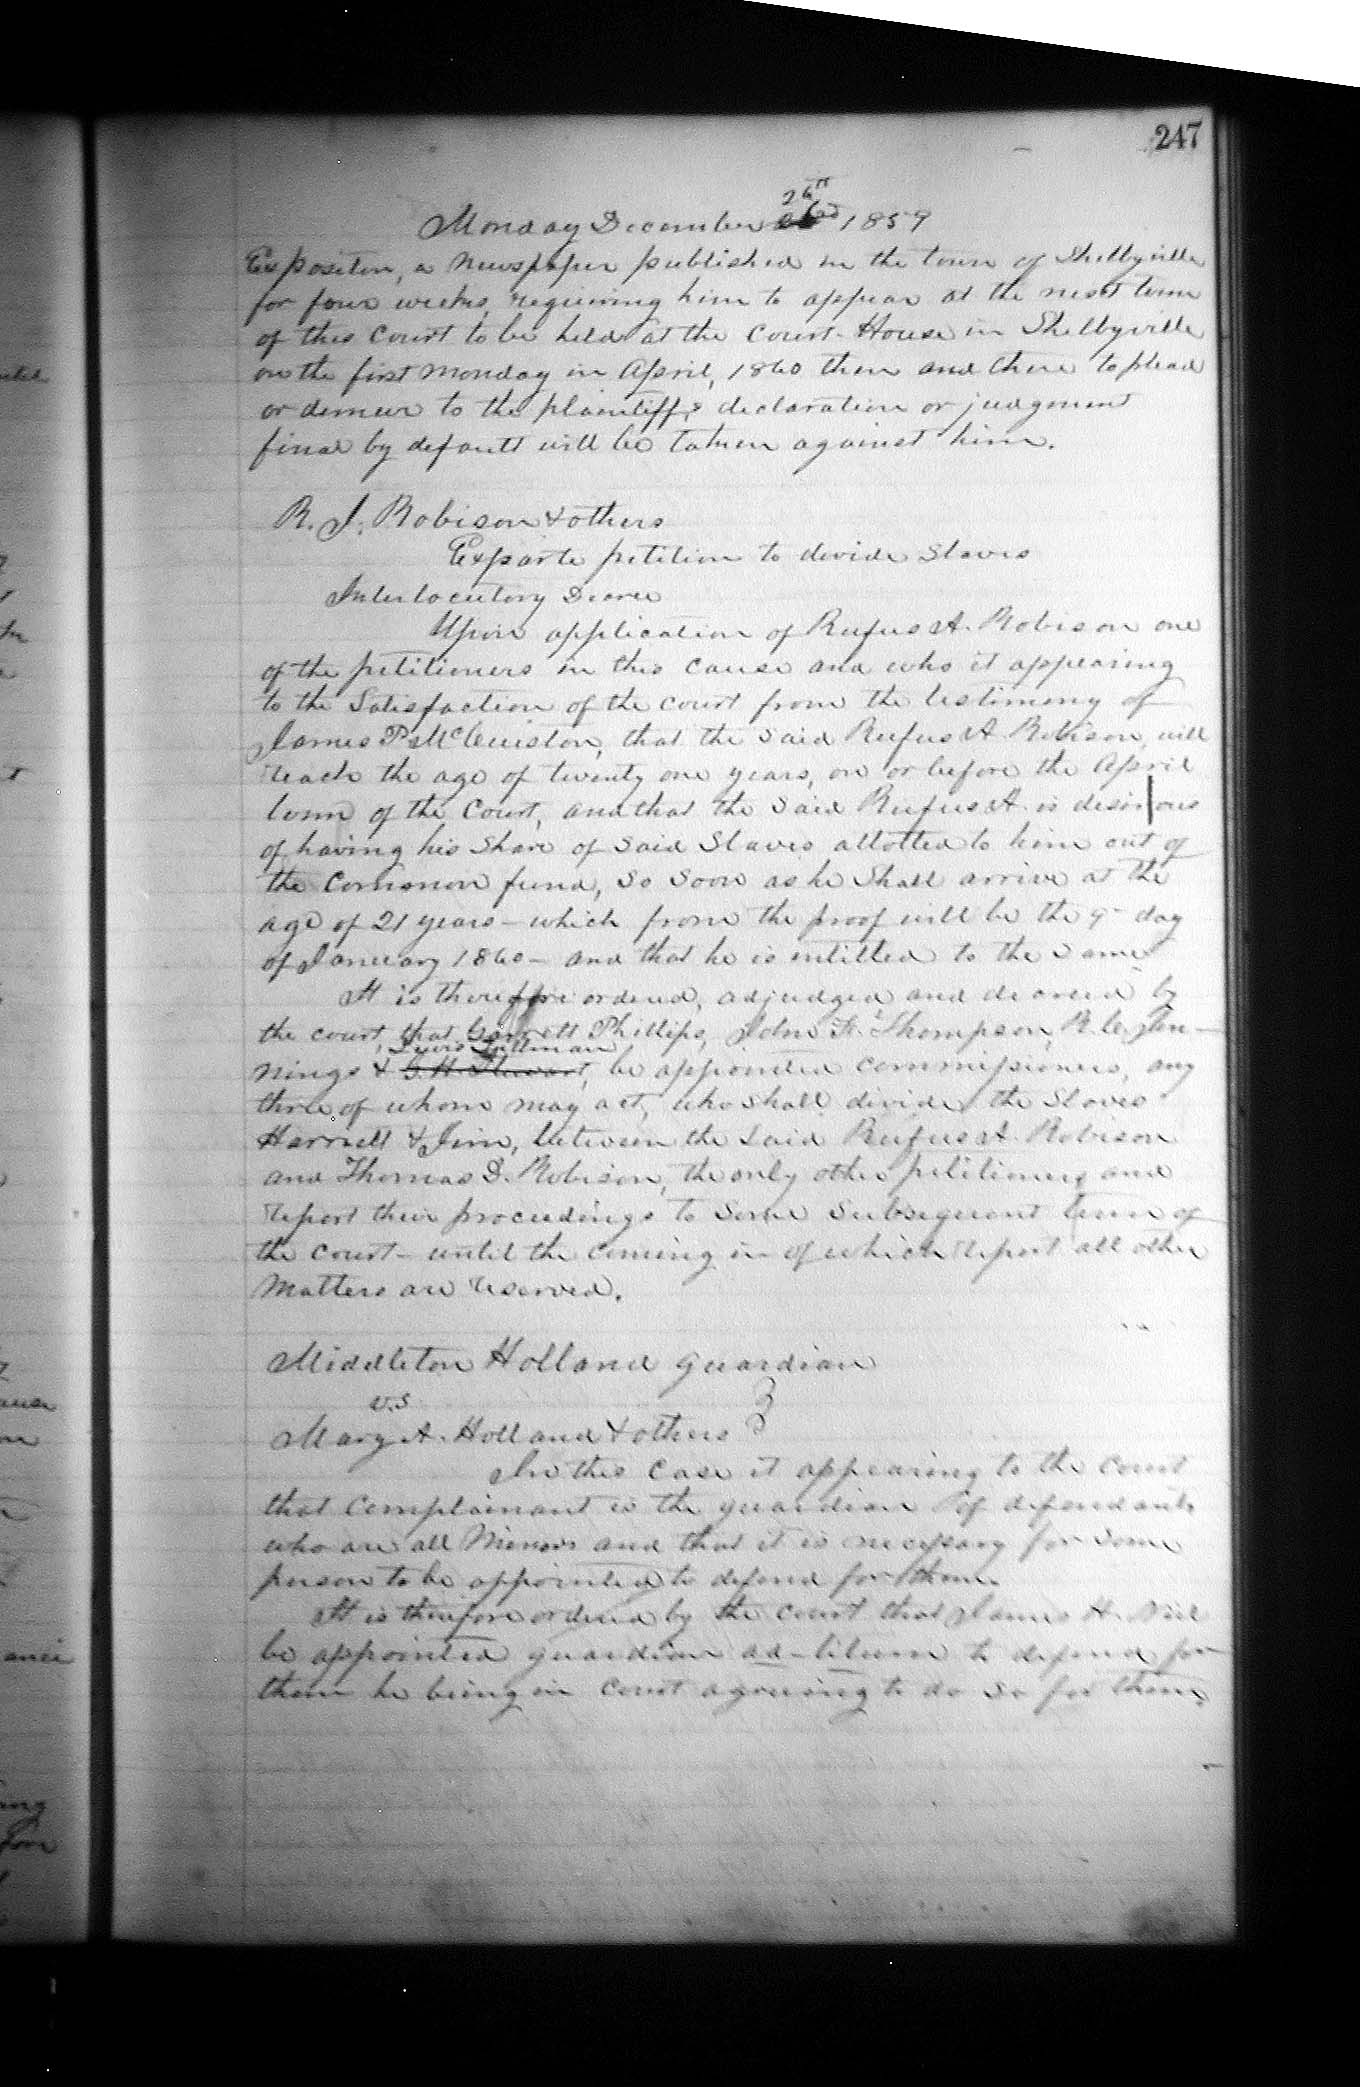 247
Monday December 26th 1859
Expositor, a Newspaper published in the town of Shelbyville
for four weeks, requiring him to appear at the next term
of this Court to be held at the Court-House in Shelbyville
on the first Monday in April, 1860 then and there to plead
or demur to the plaintiffs declaration or judgment
final by default will be taken against him.
R. J. Robison & others
Exparte petition to divide Slaves
Interlocutory Decree
Upon application of Rufus A. Robison one
of the petitioners in this cause and who it appearing
to the Satisfaction of the court from the testimony of
James P. McCuiston, that the said Rufus A. Robison, will
reach the age of twenty one years, on or before the April
term of the Court, and that the said Rufus A. is desirous
of having his Share of said Slaves allotted to him out of
the common fund, so soon as he Shall arrive at the
age of 21 years - which from the proof will be the 9th day
of January 1860 - and that he is intitled to the same
It is therefore ordered, adjudged and decreed by
the court, that Garrett Phillips, John F. Thompson, R. C. Jen-
Lewis Tillman
nings & G. H. Stewart, be appointed commissioners, any
three of whom may act, who shall divide the Slaves
Harriett & Jim, between the said Rufus A. Robison
and Thomas D. Robison, the only other petitioners and
report their proceedings to Some Subsequent term of
the court - until the coming in of which report all other
matters are reserved.
Middleton Holland guardian
v.s.
Mary A. Holland & others
In this Case it appearing to the court
that Complainant is the guardian of defendants
who are all Minors and that it is necessary for some
person to be appointed to defend for them.
It is therefore ordered by the court that James H. Neil
be appointed guardian ad-litum to defend for
them he being in court agreeing to do so for them.